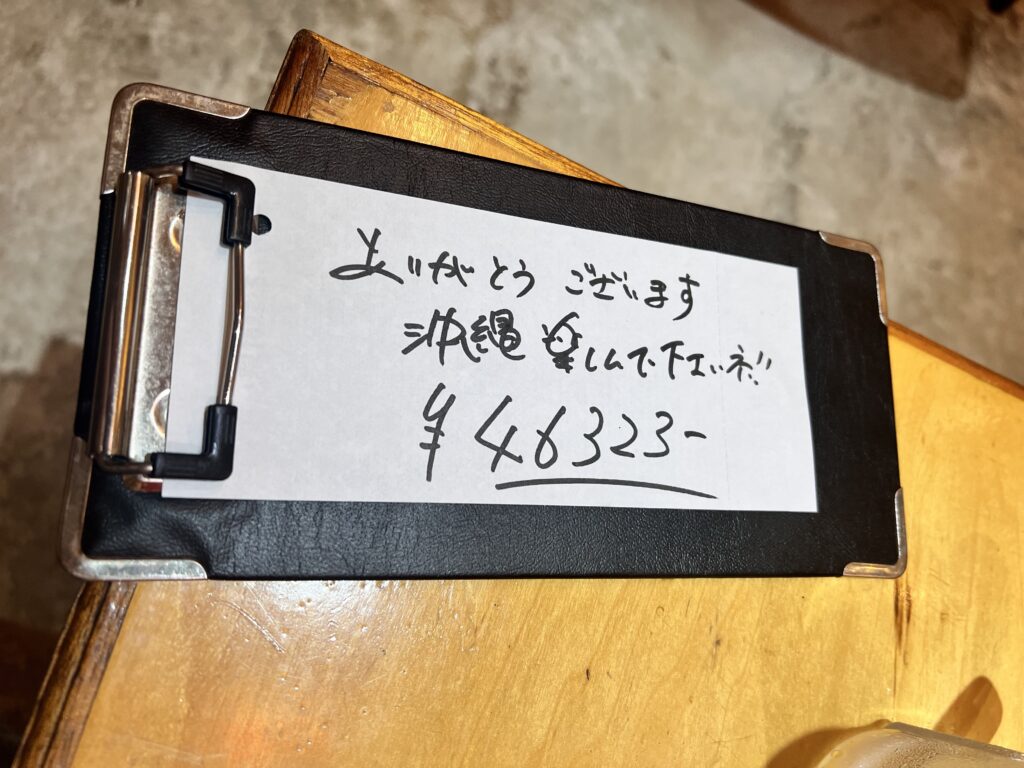 ありがとうございます
沖縄楽しんで下さいネ!!
¥46323-